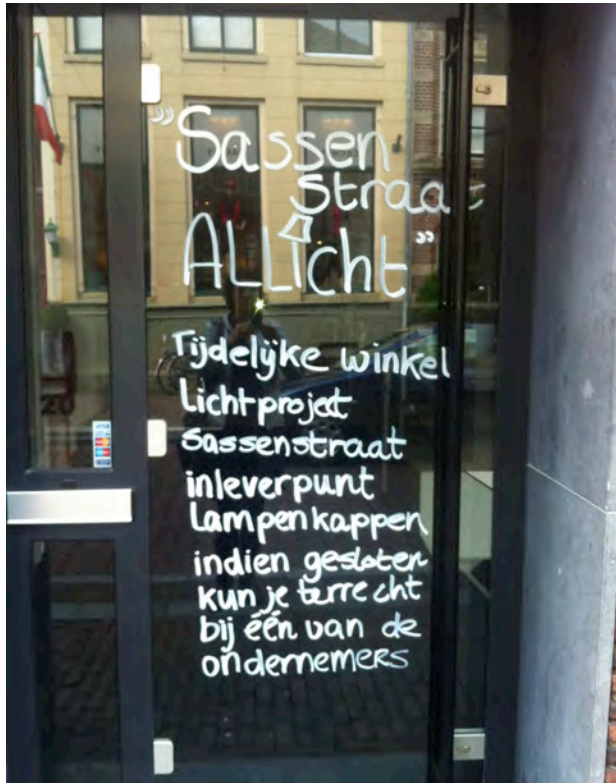 "Sassen
straat
ALLicht"
Tijdelijke winkel
Lichtproject
Sassenstraat
inleverpunt
Lampenkappen
indien gesloten
kun je terrecht
bij één van de
ondernemers